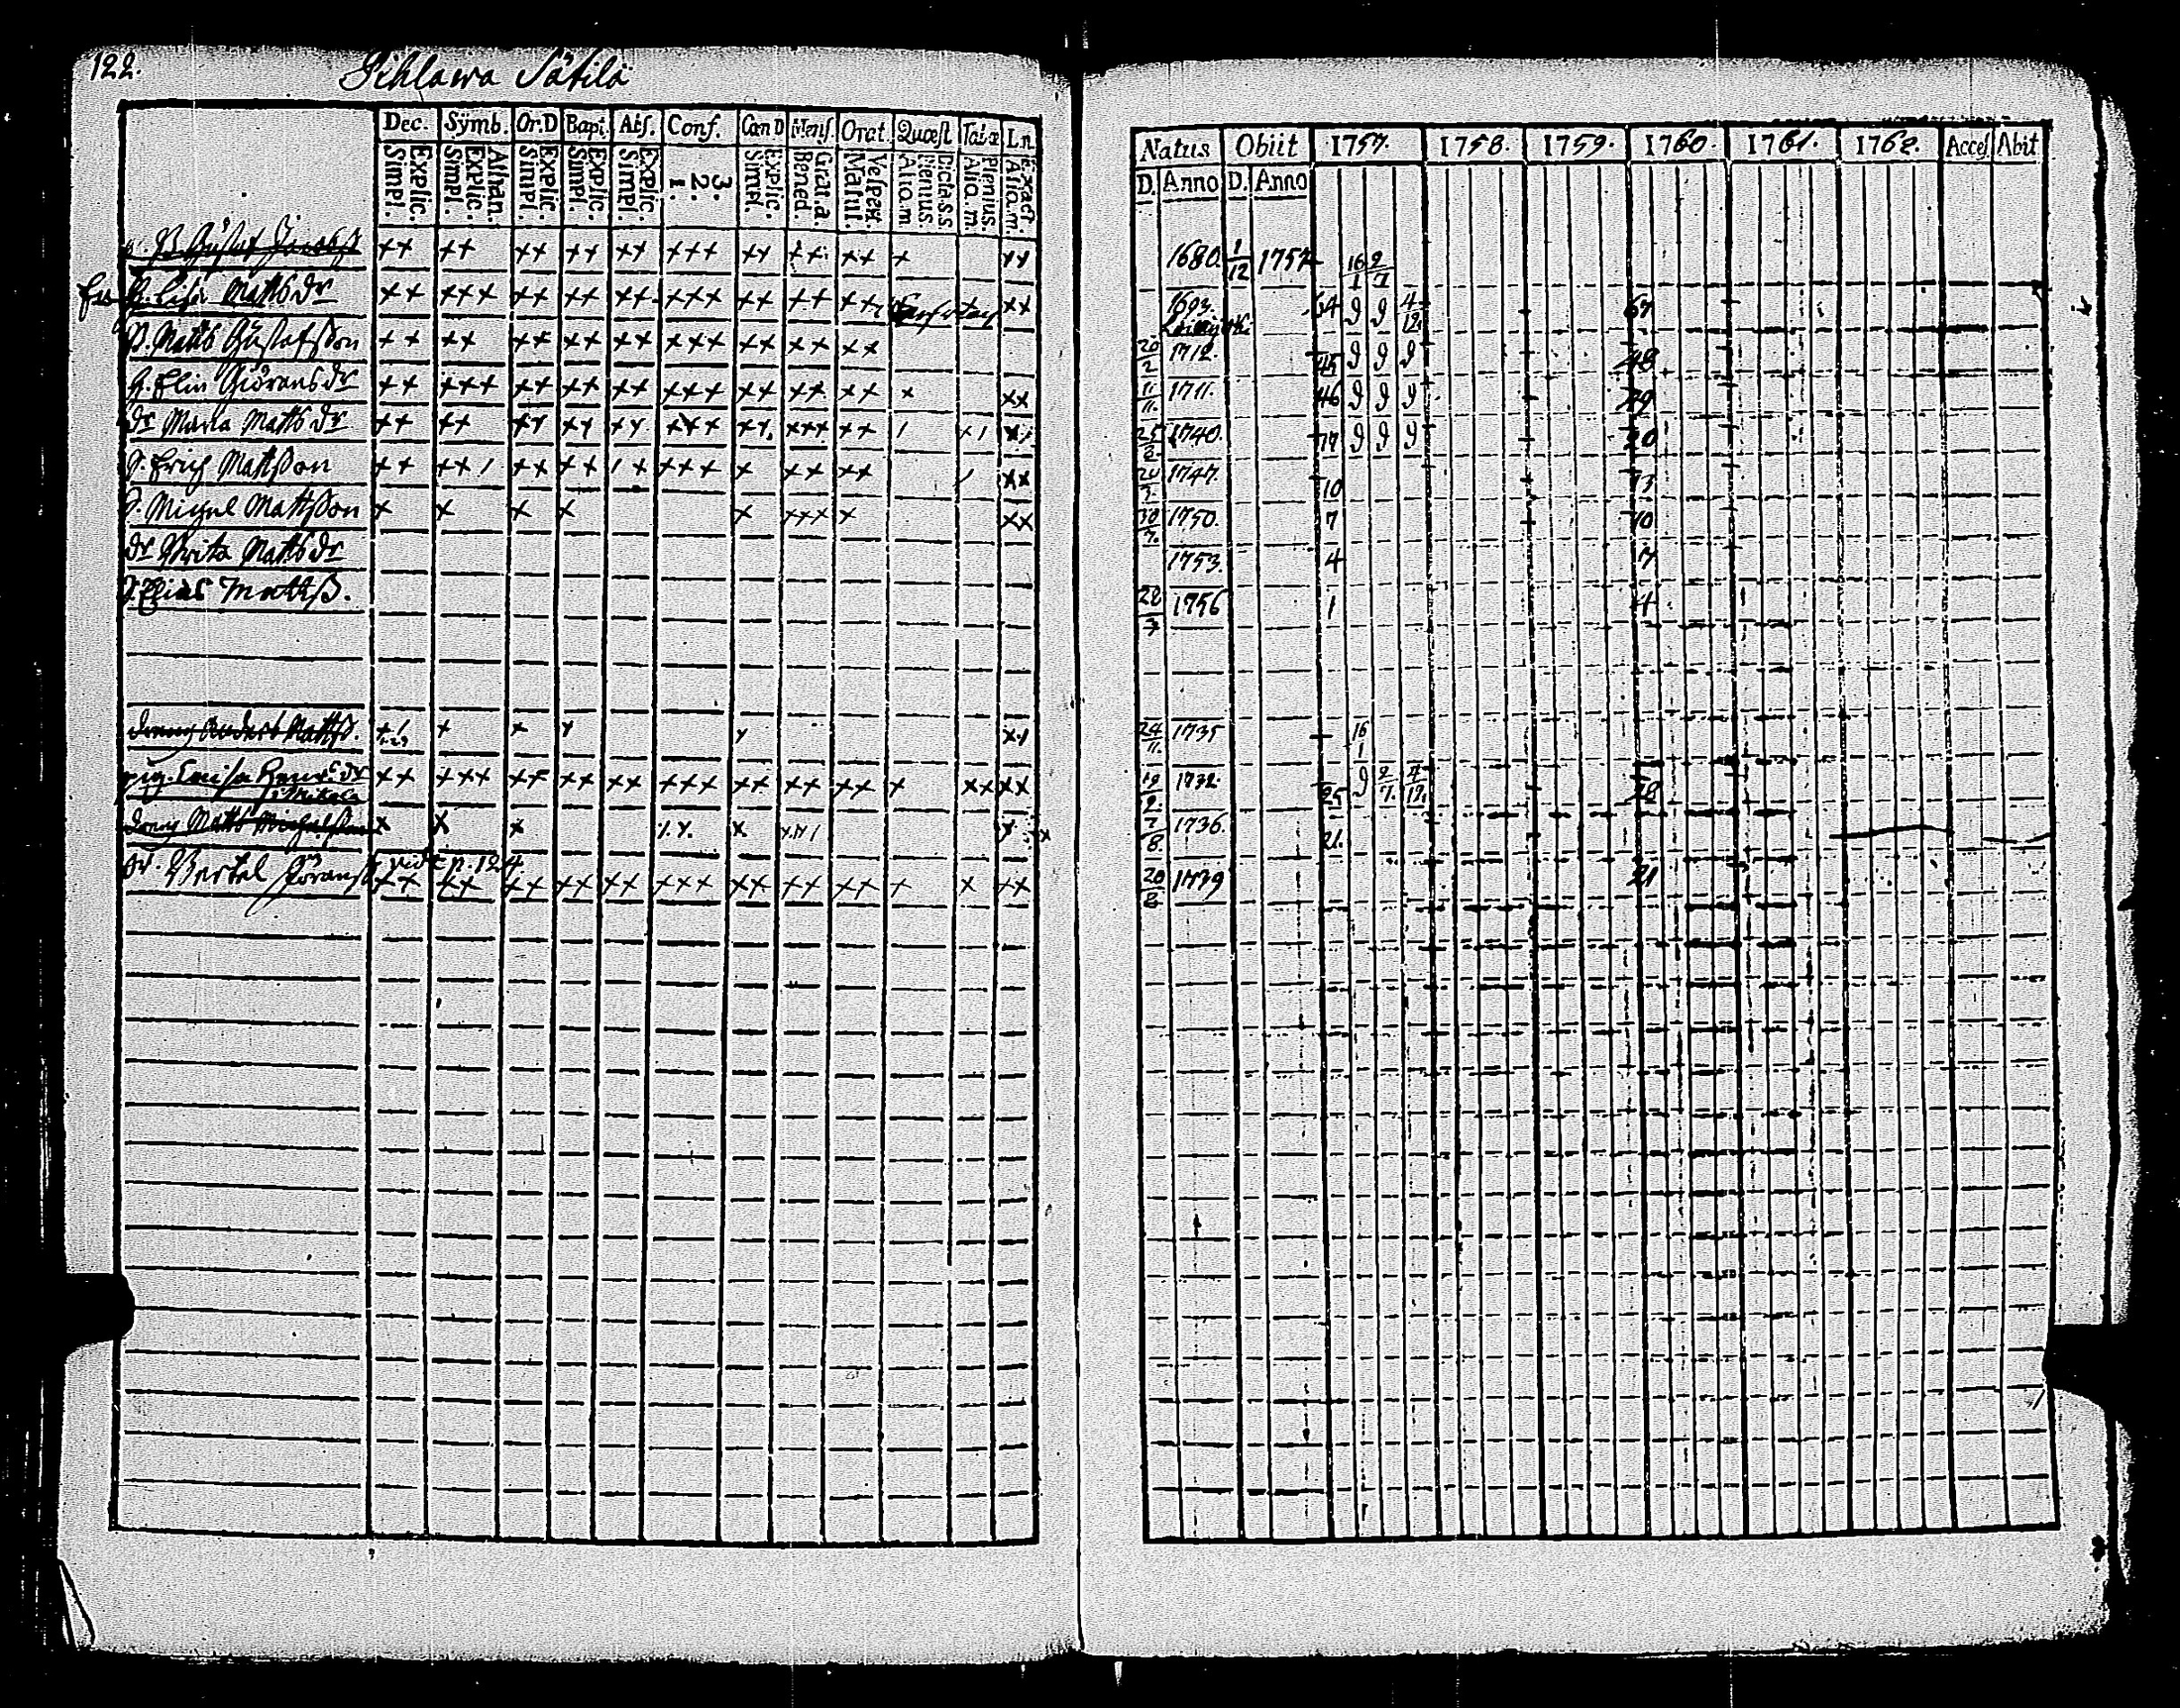 122.
Sihlawa Sätilä
Dec. Symb. Or.D Bapt. Abs. Conf. Cœn D Mens. Orat. Quæst Tabæ Ln.
Explic. Simpl. Athan. Explic. Simpl. Explic. Simpl. Explic. Simpl. Explic. Simpl. 3. 2. 1. Explic. Simpl. Grat.a Bened. Vesper. Matut. Dicta s.s. Plenius. Aliq.m Plenius. Aliq.m Exact. Aliq.m
Natus Obiit 1757. 1758. 1759. 1760. 1761. 1762. Acces. Abit
D. Anno D. Anno
B. Gustaf Jacobss ++ ++ ++ ++ ++ +++ ++ ++ ++ + ++ 1680. 1/12 1757 16/1 2/7
H. Lisa Matts dr ++ +++ ++ ++ ++ +++ ++ ++ ++ ++ 1693. 64 9 9 4/12. 67
B. Matts Gustafsson ++ ++ ++ ++ ++ +++ ++ ++ ++ 20/2 1712. 45 9 9 9 48
H. Elin Giörans dr ++ +++ ++ ++ ++ +++ ++ ++ ++ + ++ 11/11. 1711. 46 9 9 9 49
dr Maria Matts dr ++ ++ ++ ++ ++ +++ ++ +++ ++ / +/ 25/2 1740. 17 9 9 9 20
S. Erich Mattsson ++ ++/ ++ ++ /+ +++ + ++ ++ / ++ 1747. 10 13
S. Michel Mattsson + + + + + +++ + ++ 30/7. 1750. 7 10
dr Brita Matts dr 1753. 4 7
S. Elias Mattss. 28/3 1756 1 4
dreng Anders Mattss. + + + + ++ 24/11. 1735 16/1
pig. Caisa Henrs dr ++ +++ ++ ++ ++ +++ ++ ++ ++ + ++ ++ 19/2. 1732. 25 9 2/7. 4/12. 28
dreng Matts Michelsson + + + + 7/8. 1736. 21.
vide p. 124
dr. Bertel Jöranss ++ ++ ++ ++ ++ +++ ++ ++ ++ + + ++ 20/8 1739 21